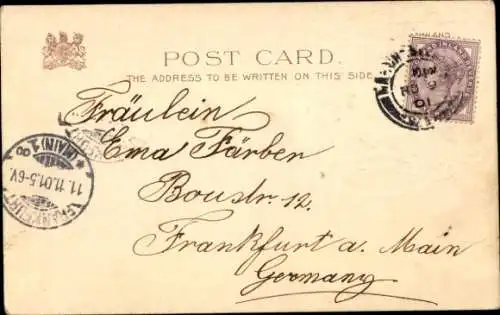 POST CARD.
THE ADDRESS TO BE WRITTEN ON THIS SIDE
Fräulein
Ema Färber
Boustr. 12.
Frankfurt a. Main
Germany.
FRANKFURT
(MAIN) 1
11.11.01.5-6V.